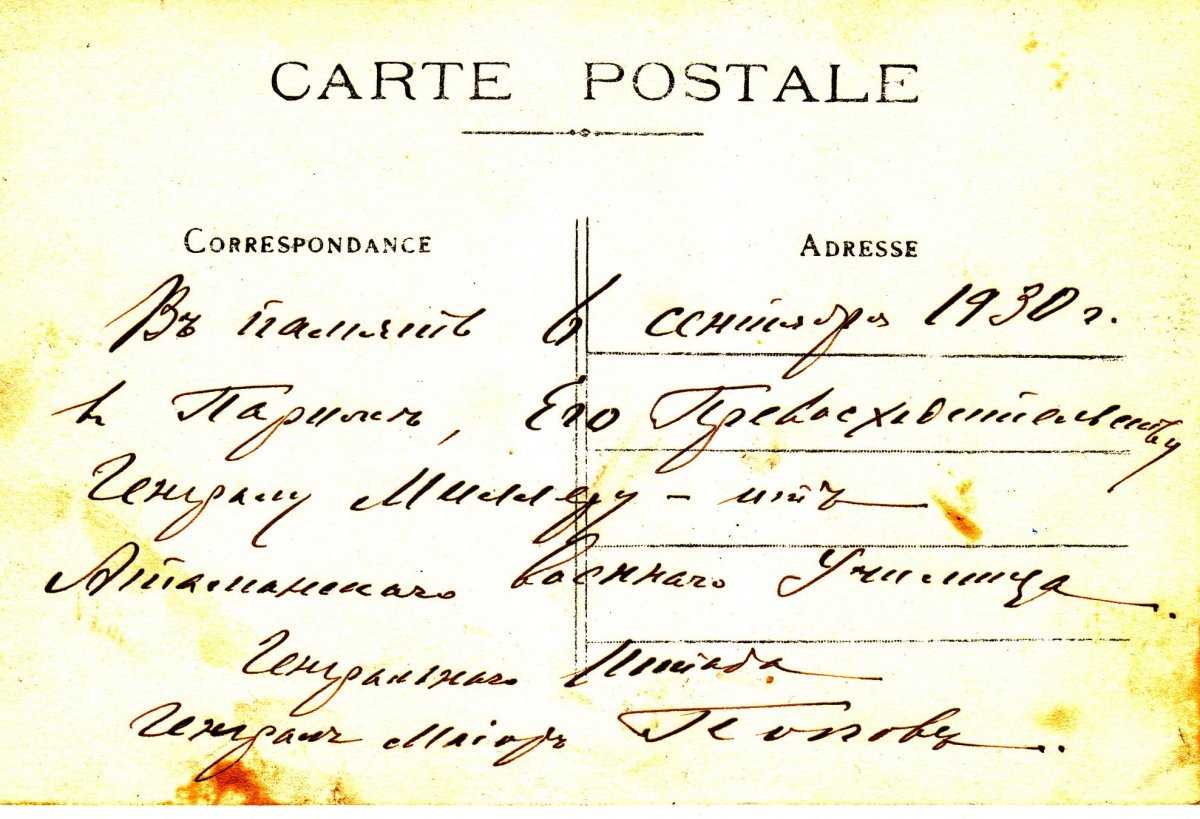 CARTE POSTALE
CORRESPONDANCE
ADRESSE
Въ память 6 сентября 1930 г.
в Париже, Его Превосходительству
Генералу Миллеру – отъ
Атаманскаго военнаго Училища.
Генеральнаго Штаба
Генералъ Маіоръ Поповъ..